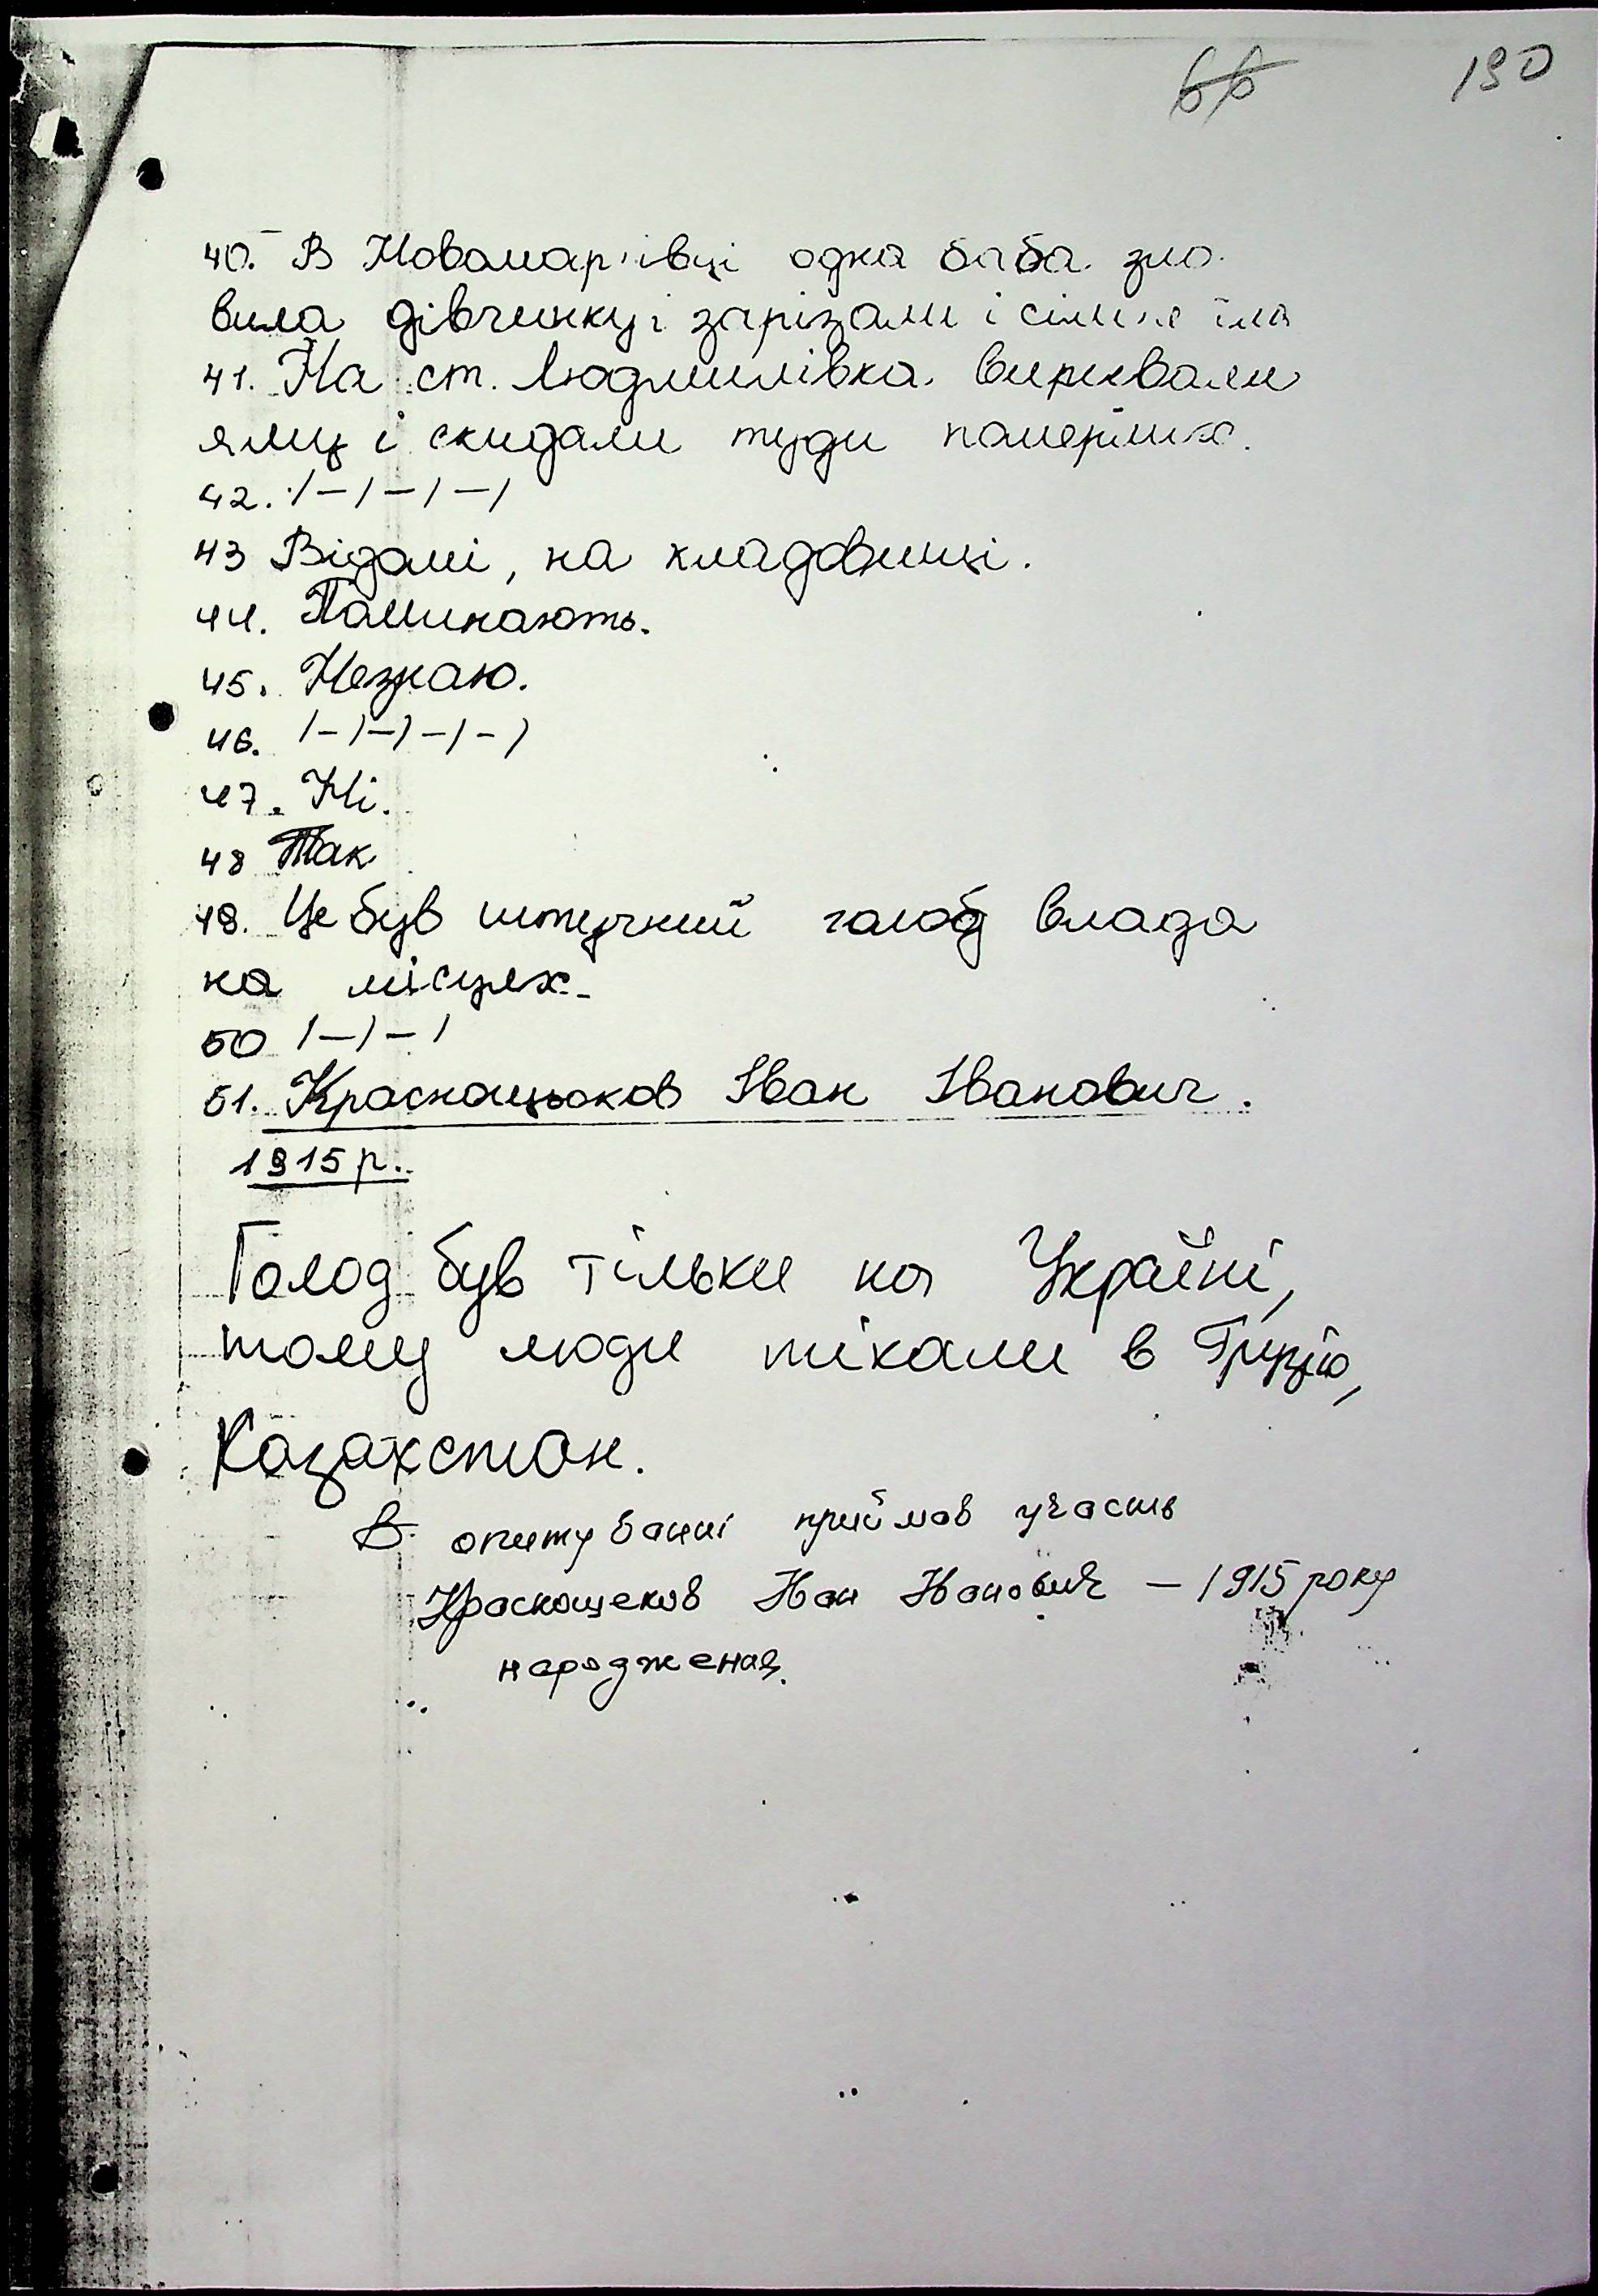 66 190
40. В Новомар'івці одна баба зло-
вила дівчинку і зарізали і сімья їла
41. На ст. Людмилівка виривали
яму і скидали туди померших.
42. /-/-/-/
43 Відомі, на кладовищі.
44. Поминають.
45. Незнаю.
46. /-/-/-/-/
47. Ні.
48 Так
49. Це був штучний голод влада
на місцях.
50 /-/-/
51. Краснощьоков Іван Іванович.
1915 р.
Голод був тільки на Україні,
тому люди тікали в Грузію,
Казахстан.
В опитуванні приймав участь
Краснощеков Іван Іванович - 1915 року
народження.